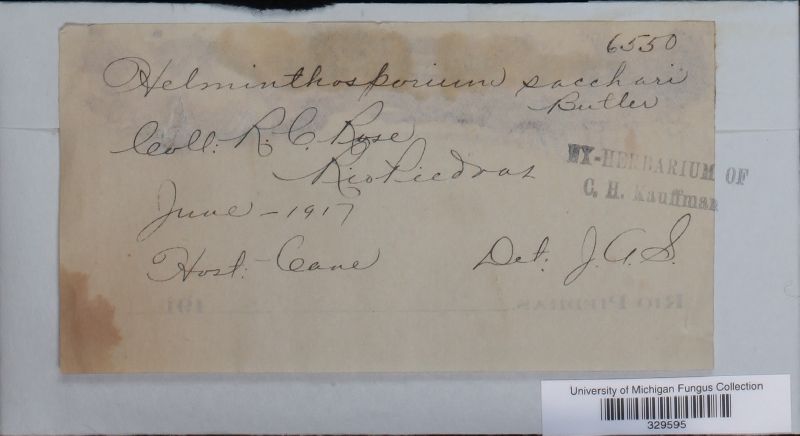 6550
Helminthosporium sacchari
Butler
Coll: R. C. Rose
Rio Piedras
EX-HERBARIUM OF
C. H. Kauffman
June - 1917
Host: - Cane
Det: J. A. S.
RIO PIEDRAS, 191
University of Michigan Fungus Collection
329595